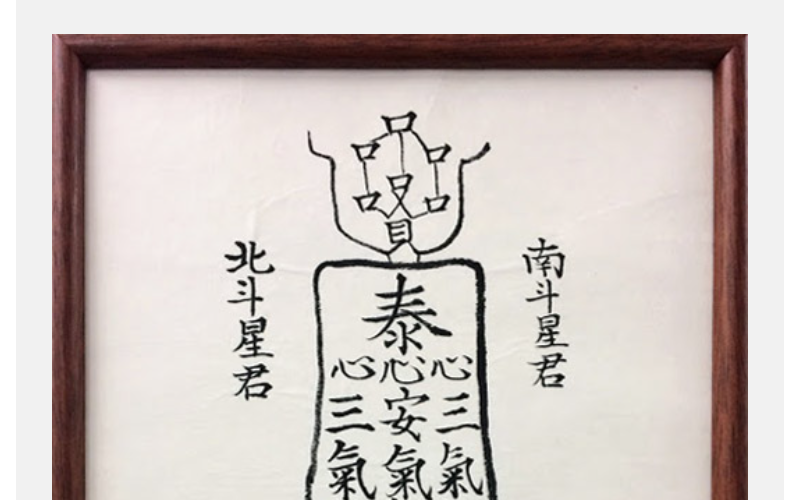 南斗星君
泰
心心心
三安三
氣氣氣
北斗星君